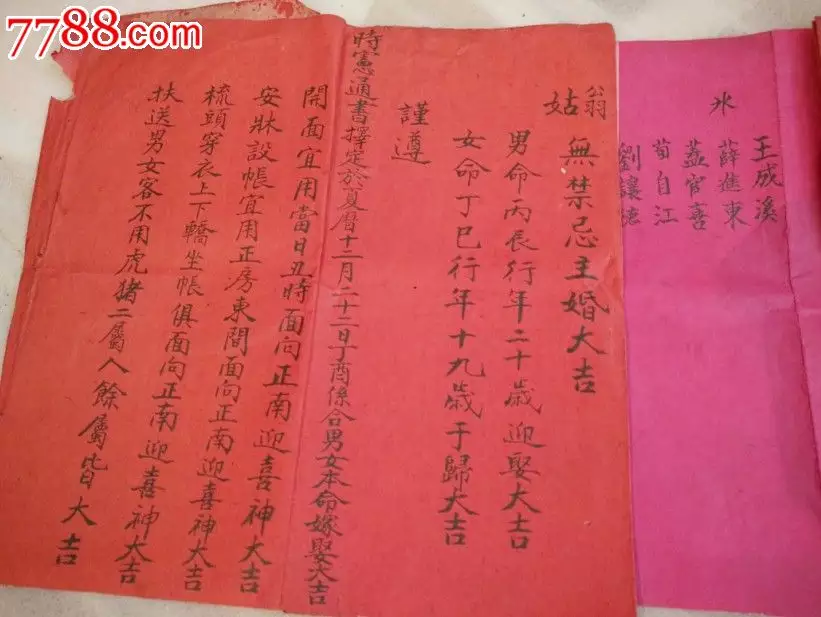 7788.com
氷
王成溪
薛進東
蓋官喜
荀自江
劉讓德
翁姑無禁忌主婚大吉
男命丙辰行年二十歲迎娶大吉
女命丁巳行年十九歲于歸大吉
謹遵
時憲通書擇定於夏曆十二月二十二日丁酉係合男女本命嫁娶大吉
開面宜用當日丑時面向正南迎喜神大吉
安牀設帳宜用正房東間面向正南迎喜神大吉
梳頭穿衣上下轎坐帳俱面向正南迎喜神大吉
扶送男女客不用虎猪二屬人餘屬皆大吉